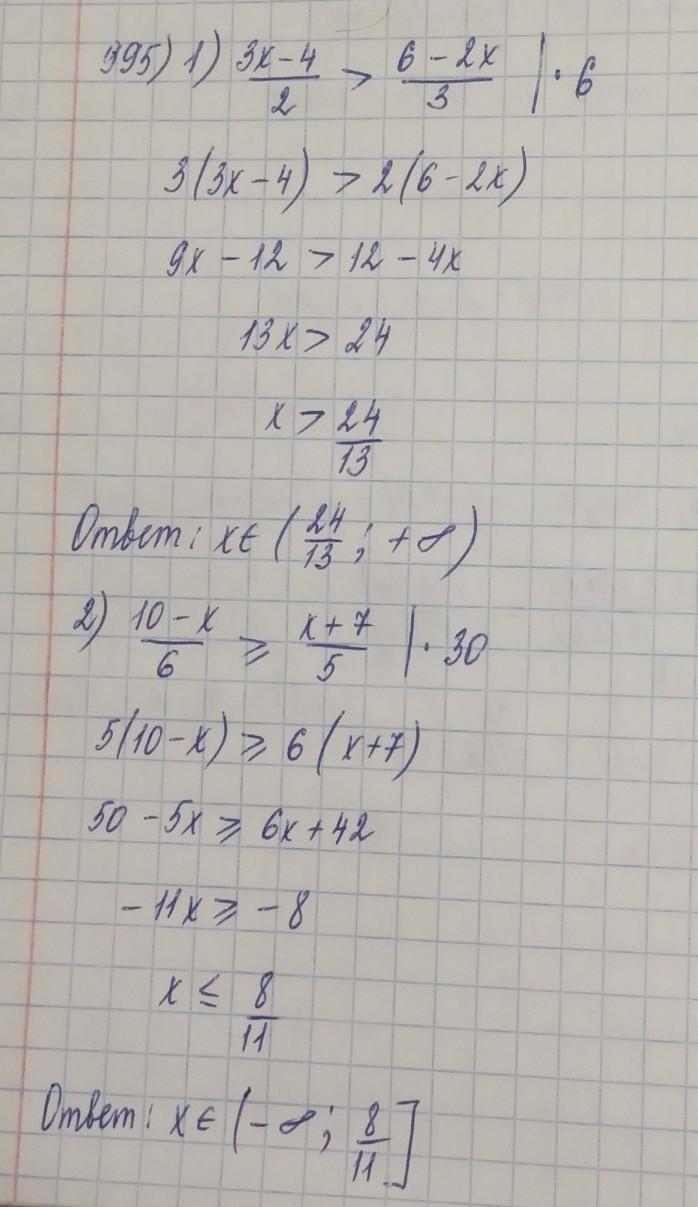 995) 1) (3x-4)/2 > (6-2x)/3 | · 6
3(3x-4) > 2(6-2x)
9x - 12 > 12 - 4x
13x > 24
x > 24/13
Ответ: x∈ (24/13; +∞)
2) (10-x)/6 ⩾ (x+7)/5 | · 30
5(10-x) ⩾ 6(x+7)
50 - 5x ⩾ 6x + 42
-11x ⩾ -8
x ≤ 8/11
Ответ: x∈ (-∞; 8/11]